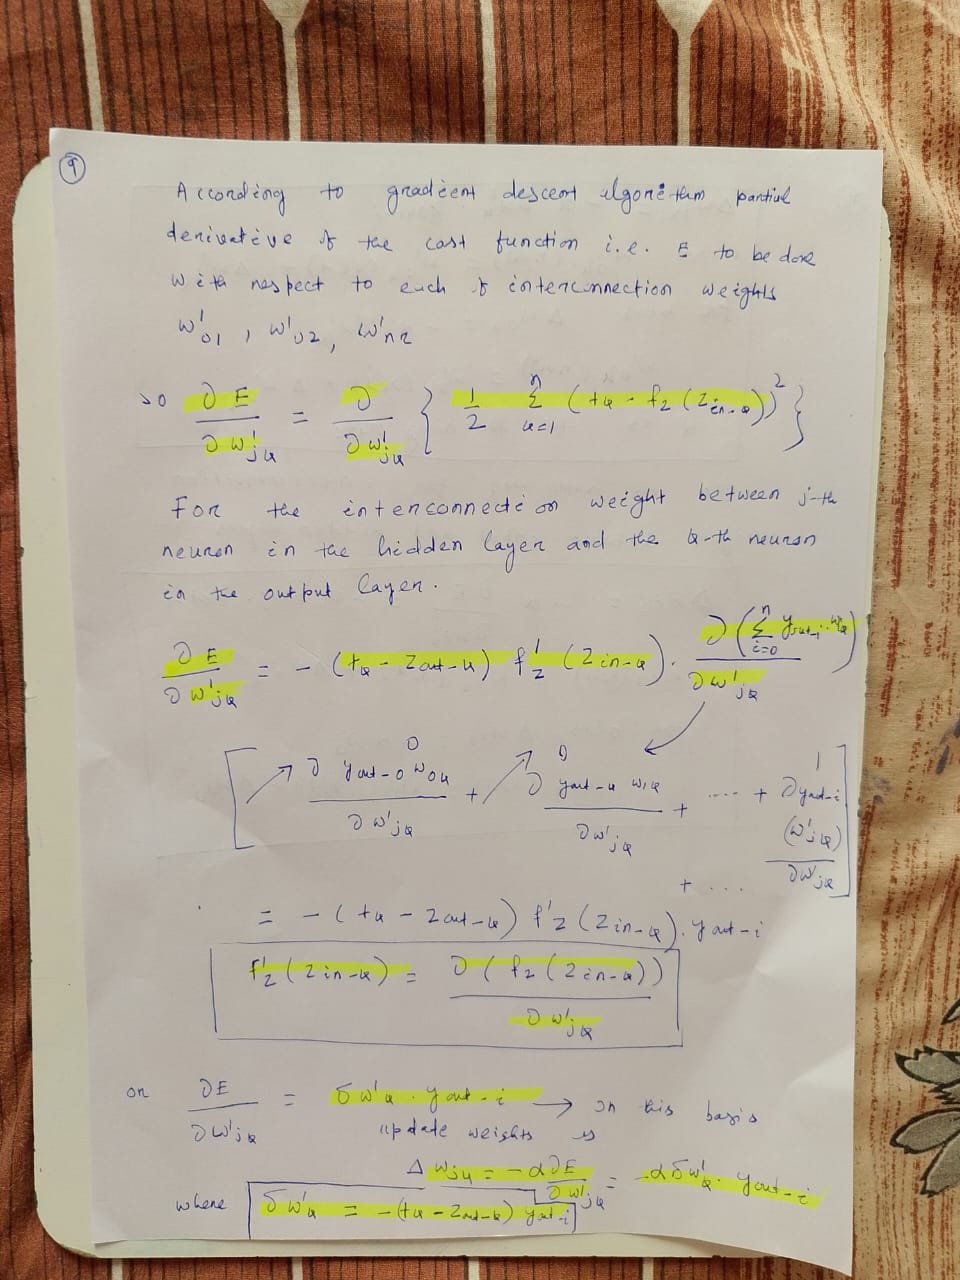 9
According to gradient descent algorithm partial
derivative of the cost function i.e. E to be done
with respect to each of interconnection weights
w'01, w'02, w'nr
so ∂E/∂w'jk = ∂/∂w'jk { 1/2 Σ(k=1 to n) (tk - f2(Zin-k))² }
For the interconnection weight between j-th
neuron in the hidden layer and the k-th neuron
in the output layer.
∂E/∂w'jk = -(tk - Zout-k) f'2(Zin-k) . ∂(Σ(i=0 to n) yout-i . w'ik)/∂w'jk
[ ∂ yout-0 w0k/∂w'jk → 0 + ∂ yout-k w1k/∂w'jk → 0 + .... + ∂yout-i (w'jk)/∂wjk 1
+ ... ]
= -(tk - Zout-k) f'2(Zin-k) . yout-i
f'2(Zin-k) = ∂(f2(Zin-k))/∂w'jk
or ∂E/∂w'jk = δw'k . yout-i → on this basis
update weights is
Δwjk = -α∂E/∂w'jk = -αδw'k . yout-i
where δw'k = -(tk - Zout-k) yout-i